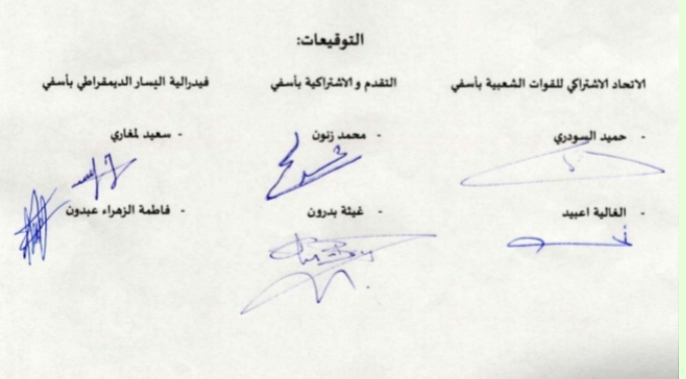 التوقيعات:
الاتحاد الاشتراكي للقوات الشعبية بأسفي
التقدم و الاشتراكية بأسفي
فيدرالية اليسار الديمقراطي بأسفي
- حميد السودري
- محمد زنون
- سعيد لمغاري
- الغالية اعبيد
- غيثة بدرون
- فاطمة الزهراء عبدون